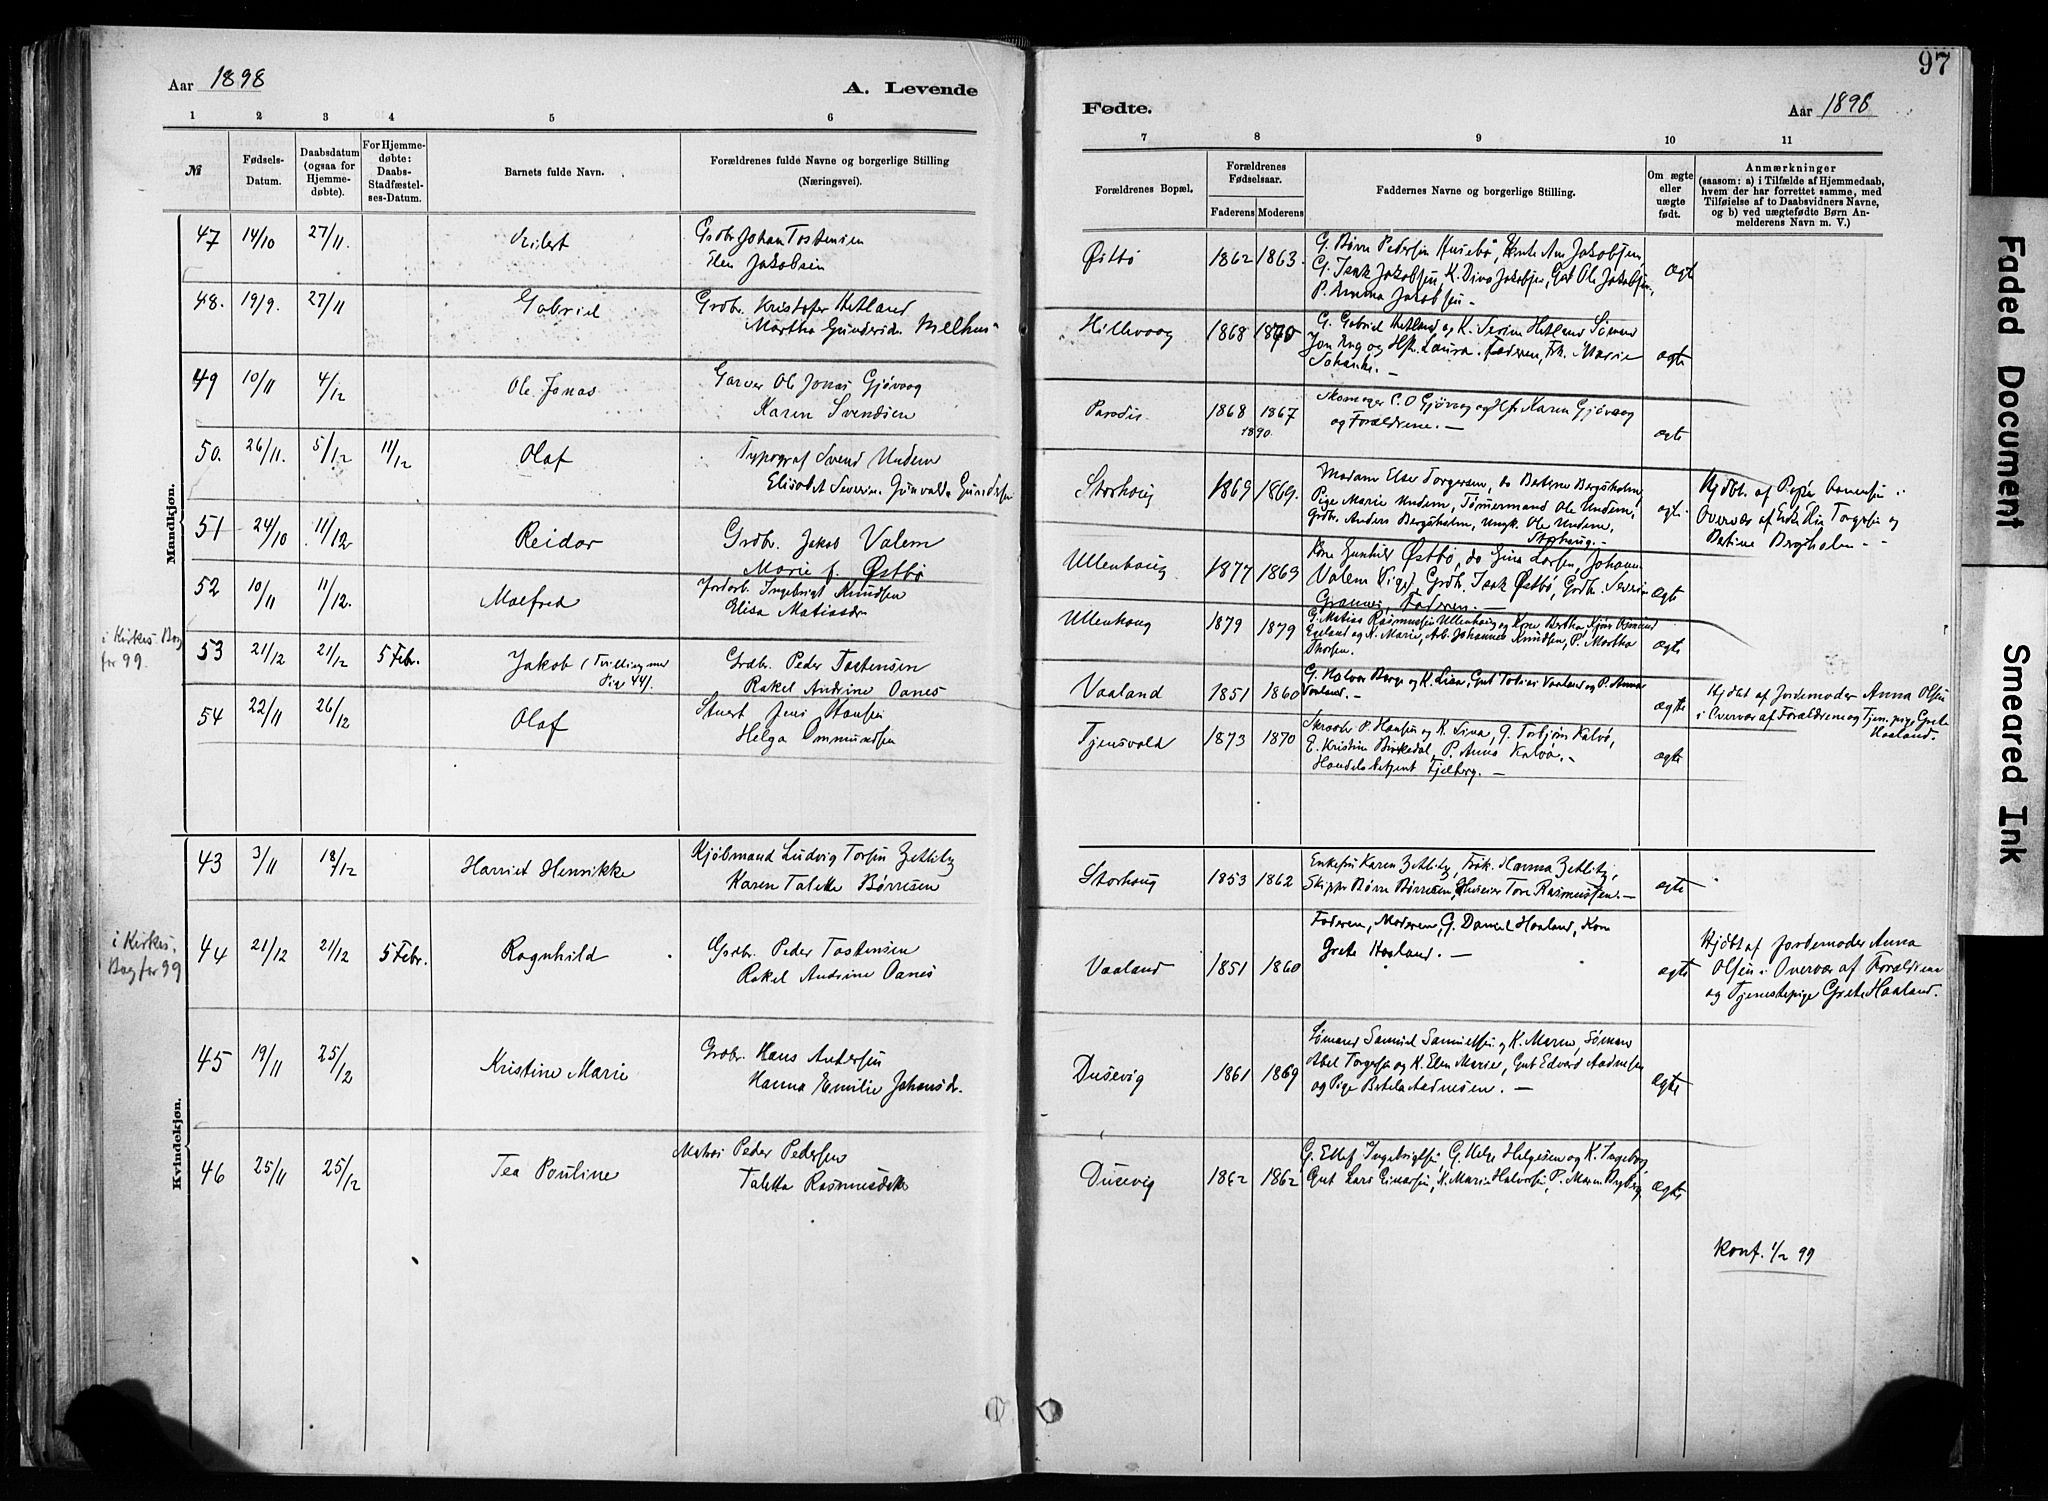 97
Aar 1898
A. Levende
Fødte.
Aar 1898
1 2 3 4 5 6
7 8 9 10 11
№
Fødsels-
Datum.
Daabsdatum
(ogsaa for
Hjemme-
døbte).
For Hjemme-
døbte:
Daabs-
Stadfæstel-
ses-Datum.
Barnets fulde Navn.
Forældrenes fulde Navne og borgerlige Stilling
(Næringsvei).
Forældrenes Bopæl.
Forældrenes
Fødselsaar.
Faderens
Moderens
Faddernes Navne og borgerlige Stilling.
Om ægte
eller
uægte
født.
Anmærkninger
(saasom: a) i Tilfælde af Hjemmedaab,
hvem der har forrettet samme, med
Tilføielse af to Daabsvidners Navne,
og b) ved uægtefødte Børn An-
melderens Navn m. V.)
Mandkjøn.
47 14/10 27/11. Eilert Grdbr Johan Tostensen
Elen Jakobsen
Østbø 1862 1863. G. Børre Pedersen Husebø, Ane Jakobsen,
G. Isak Jakobsen, K. Dina Jakobsen, Gut Ole Jakobsen,
P. Emma Jakobsen –
ægte
48. 19/9. 27/11 Gabriel Grdbr. Kristofer Hetland
Martha Gundersd. Melhus
Hillevaag 1868 1870 G. Gabriel Hetland og K. Serine Hetland
og Hst. Laura. Faderen, Frk. Marie
Johanne. –
ægte
49 10/11 4/12 Ole Jonas Garver Ole Jonas Gjøvaag
Karen Svendsen
Paradis. 1868 1867
1890.
Skomager C. O Gjøvaag og Hst. Karen Gjøvaag
og Forældrene. –
ægte
50. 26/11. 5/12 11/12 Olaf Typograf Svend Undem
Elisabet Severine Gunvalda Gundersen
Storhoug 1869 1869. Madam Else Torgersen, do Batine Bergsholm,
Pige Marie Undem, Tømmermand Ole Undem,
Grdbr. Anders Bergsholm, Ungk. Ole Undem,
Storhaug. –
ægte
Hjdbt. af
Overvær af Torgersen og
Batine Bergsholm –
51 24/10 11/12 Reidar Grdbr. Jakob Valem
Marie f. Østbø
Ullenhaug 1877 1869 Kone Gunhild Østbø, do Gina Larsen, Johan
Valem Grdbr. Isak Østbø, Grdbr. Severin
Faderen. –
ægte
52 10/11 11/12. Malfred Jordarb. Ingebrigt Knudsen
Elisa Matiasdr
Ullenhaug 1879 1879 G. Matias Rasmussen Ullenhaug og Kone Bertha
og K. Marie, Arb. Johannes Knudsen, P. Martha
Thorsen.
ægte
i Kirkes. Bog
for 99.
53 21/12 21/12 5 Febr. Jakob (Tvilling med
Pige 44).
Grdbr. Peder Tostensen
Rakel Andrine Oanes
Vaaland 1851 1860 G. Halvor Berge og K. Lisa, Gut Tobias Vaaland og P. Anna
Vaaland. –
ægte
Hjdbt af Jordemoder Anna Olsen
i Overvær af Forældrene og Tjen.pige Grete
Haaland.
54 22/11 26/12 Olaf Stuert Jens Hansen
Helga Ommundsen
Tjensvold 1873 1870 Skrædder P. Hansen og K. Lina, G. Torbjørn Kalvø,
E. Kristine Birkedal, P. Anna Kalvø. –
Handelsbetjent Fjelberg. –
ægte
Kvindekjøn.
43 3/11 18/12 Harriet Henrikke Kjøbmand Ludvig Torsen Zetlitz
Karen Talette Børresen
Storhoug 1853 1862 Enkefru Karen Zetlitz, Frøk. Hanna Zetlitz,
Skipper Børre Børresen, Huseier Tore Rasmussen. –
ægte
i Kirkes.
Bog for 99
44 21/12 21/12 5 Febr. Ragnhild Grdbr. Peder Tostensen
Rakel Andrine Oanes
Vaaland 1851 1860 Faderen, Moderen, G. Daniel Haaland, Kone
Grete Haaland. –
ægte
Hjdbt af Jordemoder Anna
Olsen i Overvær af Forældrene
og Tjenestepige Grete Haaland.
45 19/11 25/12 Kristine Marie Grdbr. Hans Andersen
Hanna Emilie Johansdr.
Dusevig 1861 1869 Sømand Samuel Samuelsen og K. Maren, Sømand
Abel Torgersen og K. Elen Marie, Gut Edvard Aadnesen
og Pige Betela Aadnesen. –
ægte
46 25/11 25/12 Tea Pouline Matros Peder Pedersen
Taletta Rasmusdatter
Dusevig 1862 1862 G. Ellef Ingebrigtsen, G. Helge Helgesen og K. Ingeborg
Gut Lars Einarsen, K. Marie Halvorsen, P. Maren
ægte
Konf. 1/2 99
Faded Document
Smeared Ink